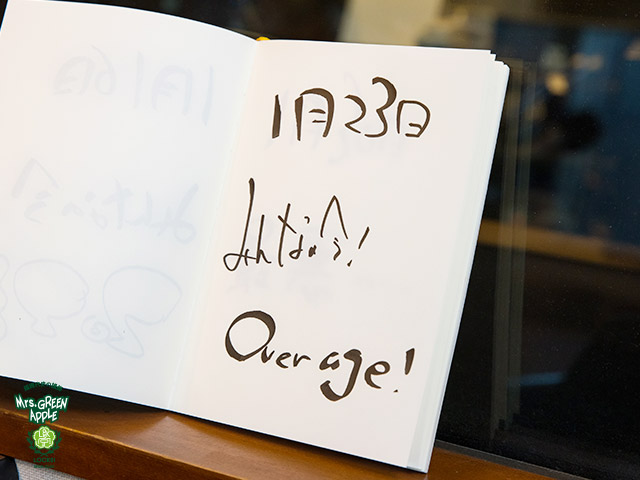 1月23日
みんなへ!
Over age!
Mrs. GREEN
APPLE